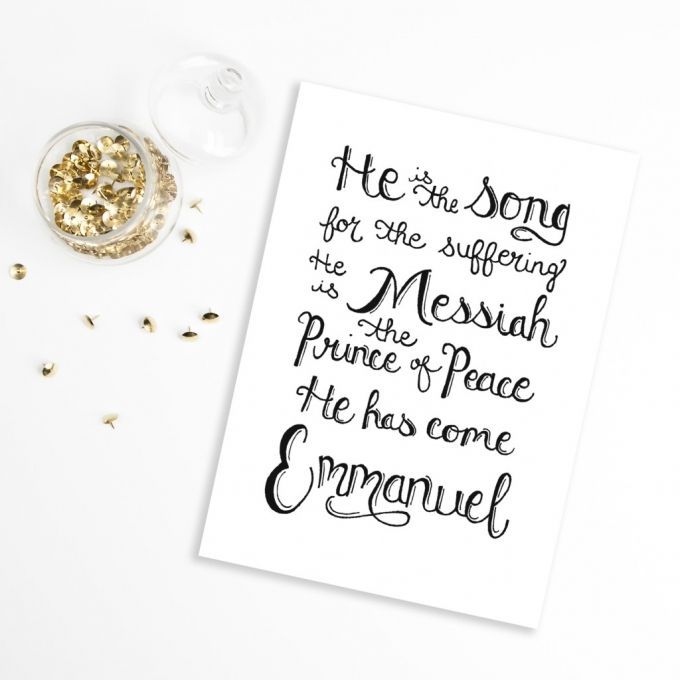 He is the song
for the suffering
He is Messiah
the
Prince of Peace
He has come
Emmanuel